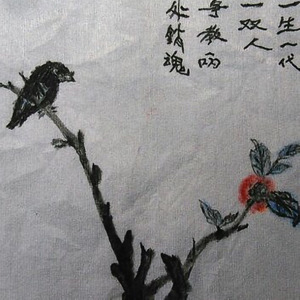 一生一代
一双人
争教两
处銷魂